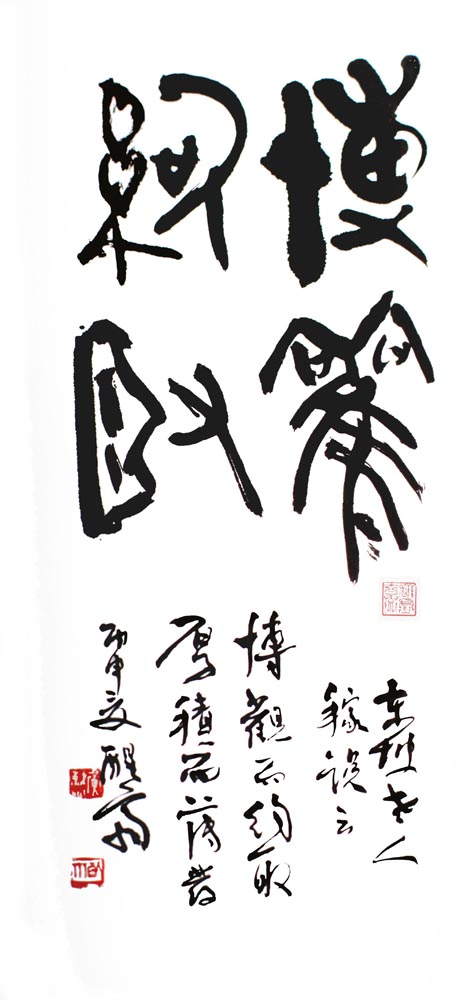 博觀
約取
東坡老人
稼說云
博觀而約取
厚積而薄發
丙申夏醒